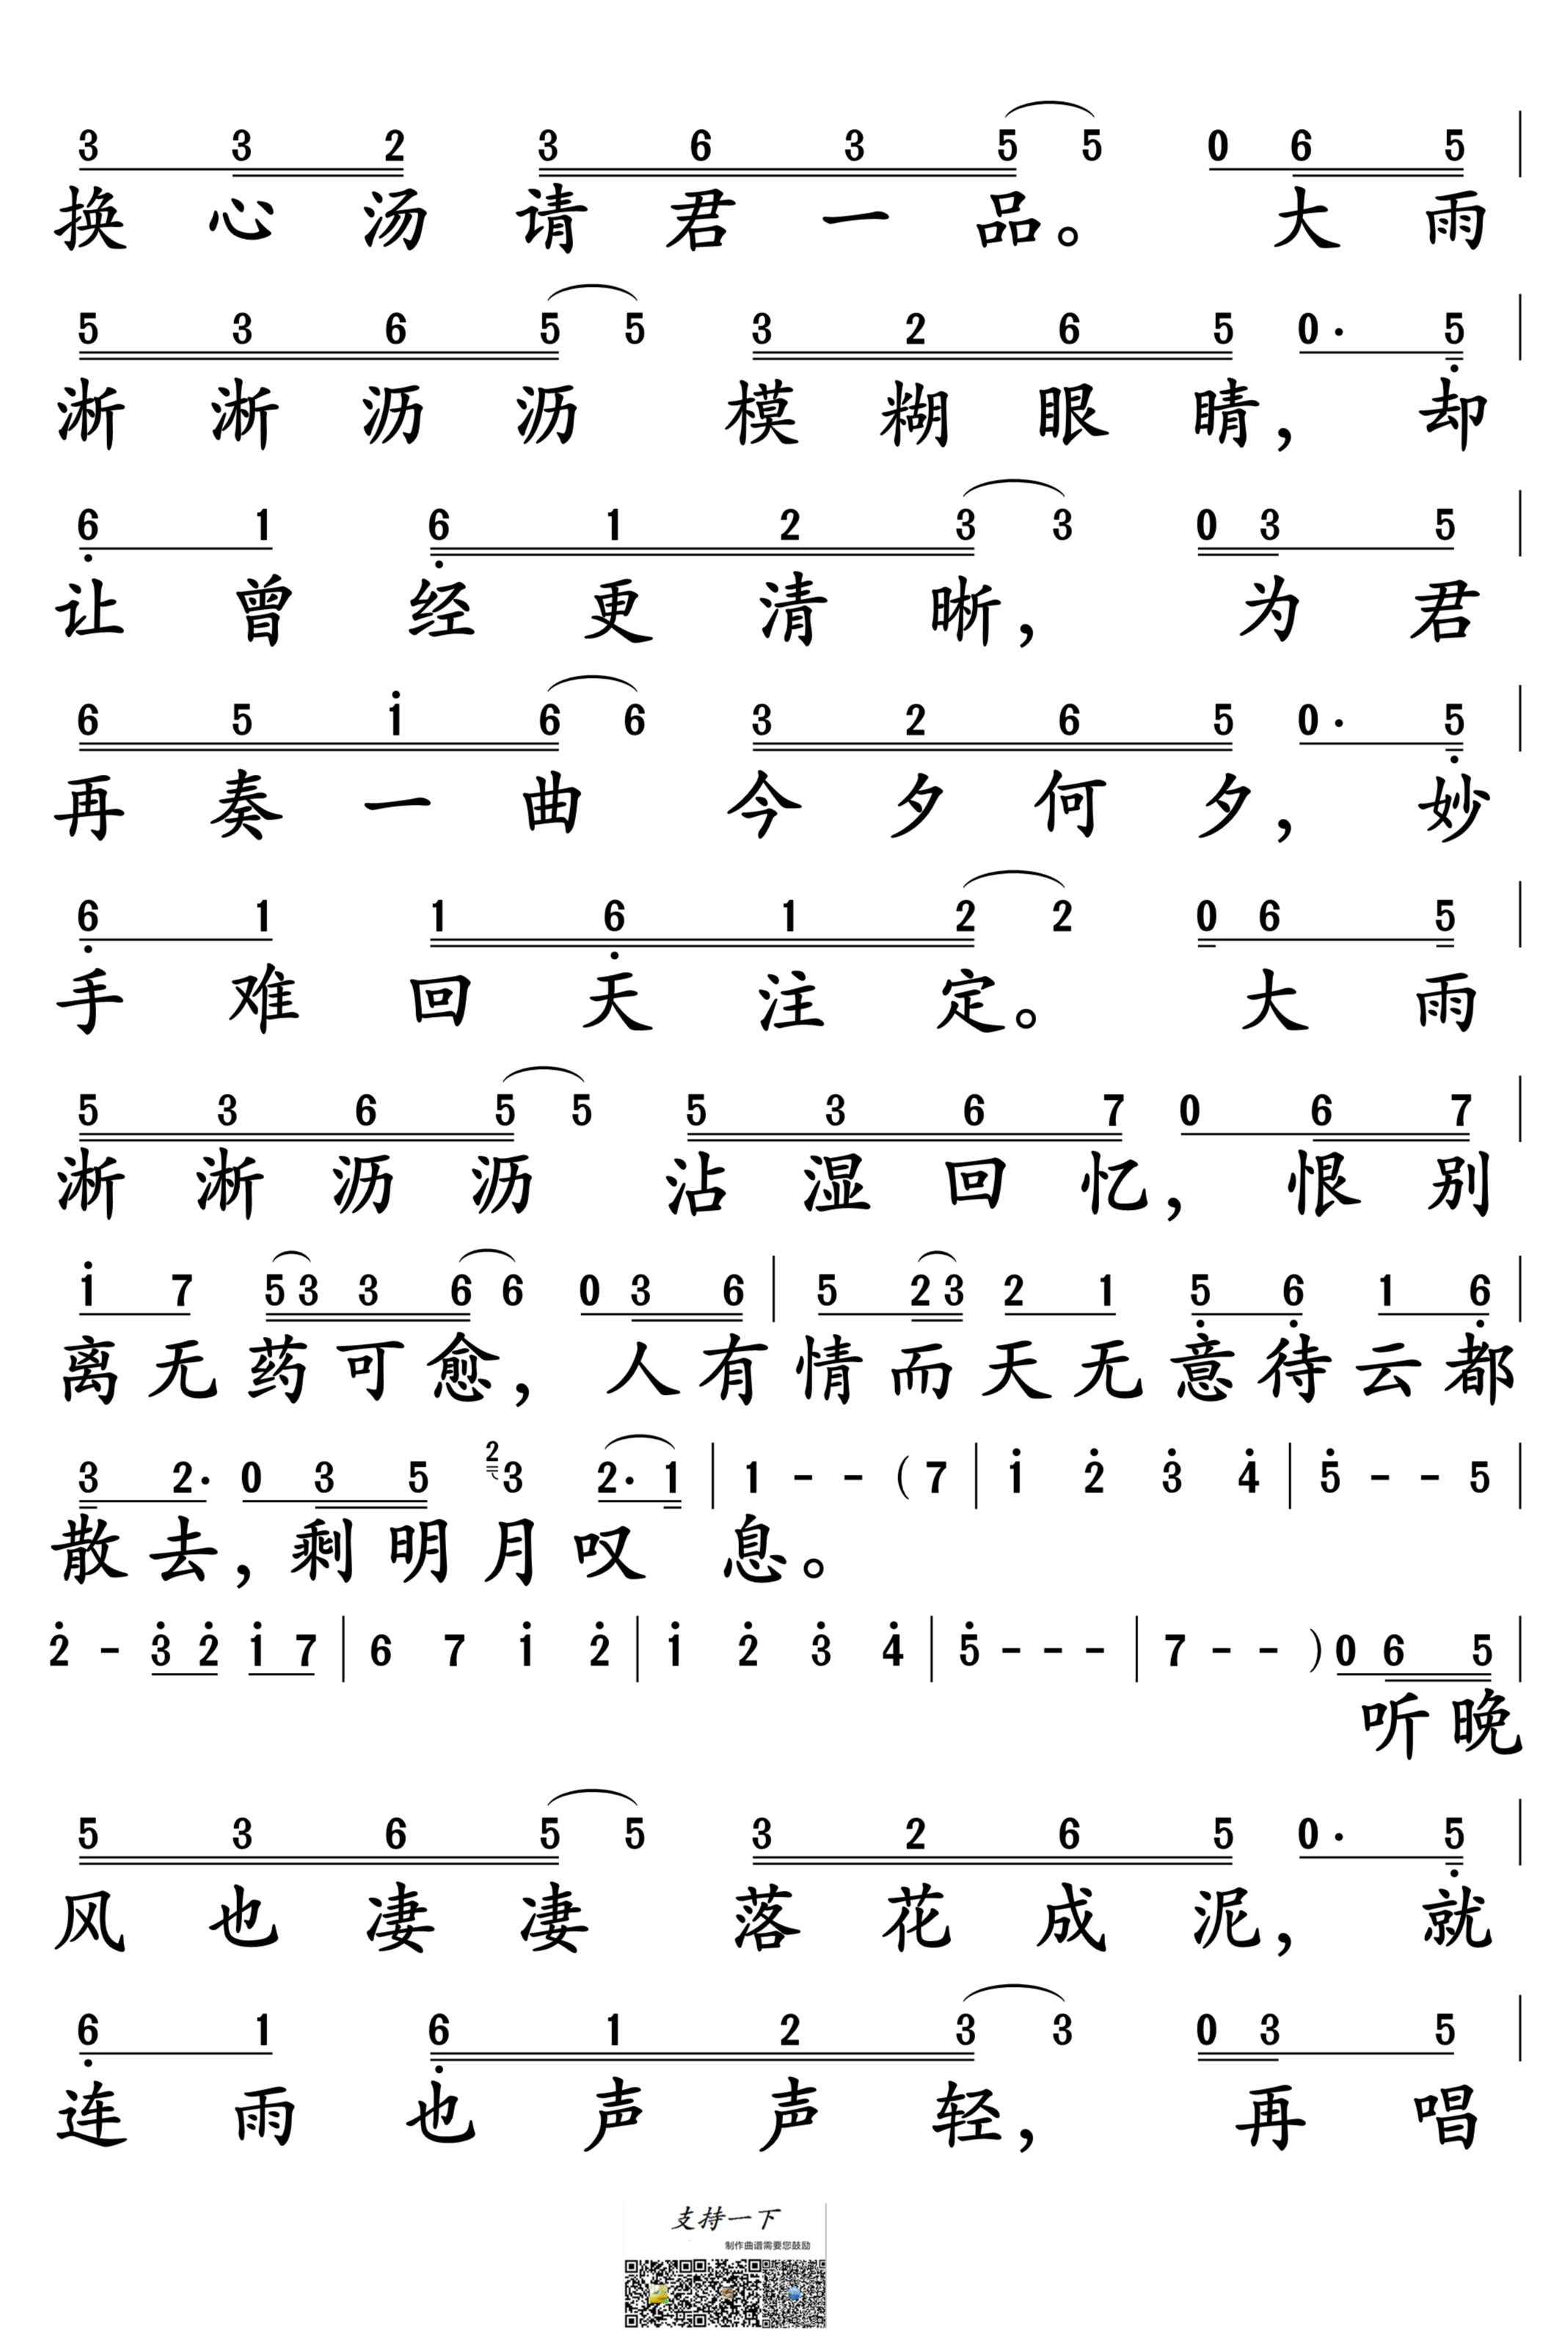 3 3 2 3 6 3 5 5 0 6 5 |
换 心 汤 请 君 一 品。 大 雨
5 3 6 5 5 3 2 6 5 0· 5̣ |
淅 淅 沥 沥 模 糊 眼 睛， 却
6̣ 1 6̣ 1 2 3 3 0 3 5 |
让 曾 经 更 清 晰， 为 君
6 5 1̇ 6 6 3 2 6 5 0· 5̣ |
再 奏 一 曲 今 夕 何 夕， 妙
6̣ 1 1 6̣ 1 2 2 0 6 5 |
手 难 回 天 注 定。 大 雨
5 3 6 5 5 5 3 6 7 0 6 7 |
淅 淅 沥 沥 沾 湿 回 忆， 恨 别
1̇ 7 5 3 3 6 6 0 3 6 | 5 2 3 2 1 5̣ 6̣ 1 6̣ |
离 无 药 可 愈， 人 有 情 而 天 无 意 待 云 都
3 2· 0 3 5 2 3 2· 1 | 1 - - ( 7 | 1̇ 2̇ 3̇ 4̇ | 5̇ - - 5 |
散 去， 剩 明 月 叹 息。
2̇ - 3̇ 2̇ 1̇ 7 | 6 7 1̇ 2̇ | 1̇ 2̇ 3̇ 4̇ | 5̇ - - - | 7 - - ) 0 6 5 |
听 晚
5 3 6 5 5 3 2 6 5 0· 5̣ |
风 也 凄 凄 落 花 成 泥， 就
6̣ 1 6̣ 1 2 3 3 0 3 5 |
连 雨 也 声 声 轻， 再 唱
支持一下
制作曲谱需要您鼓励